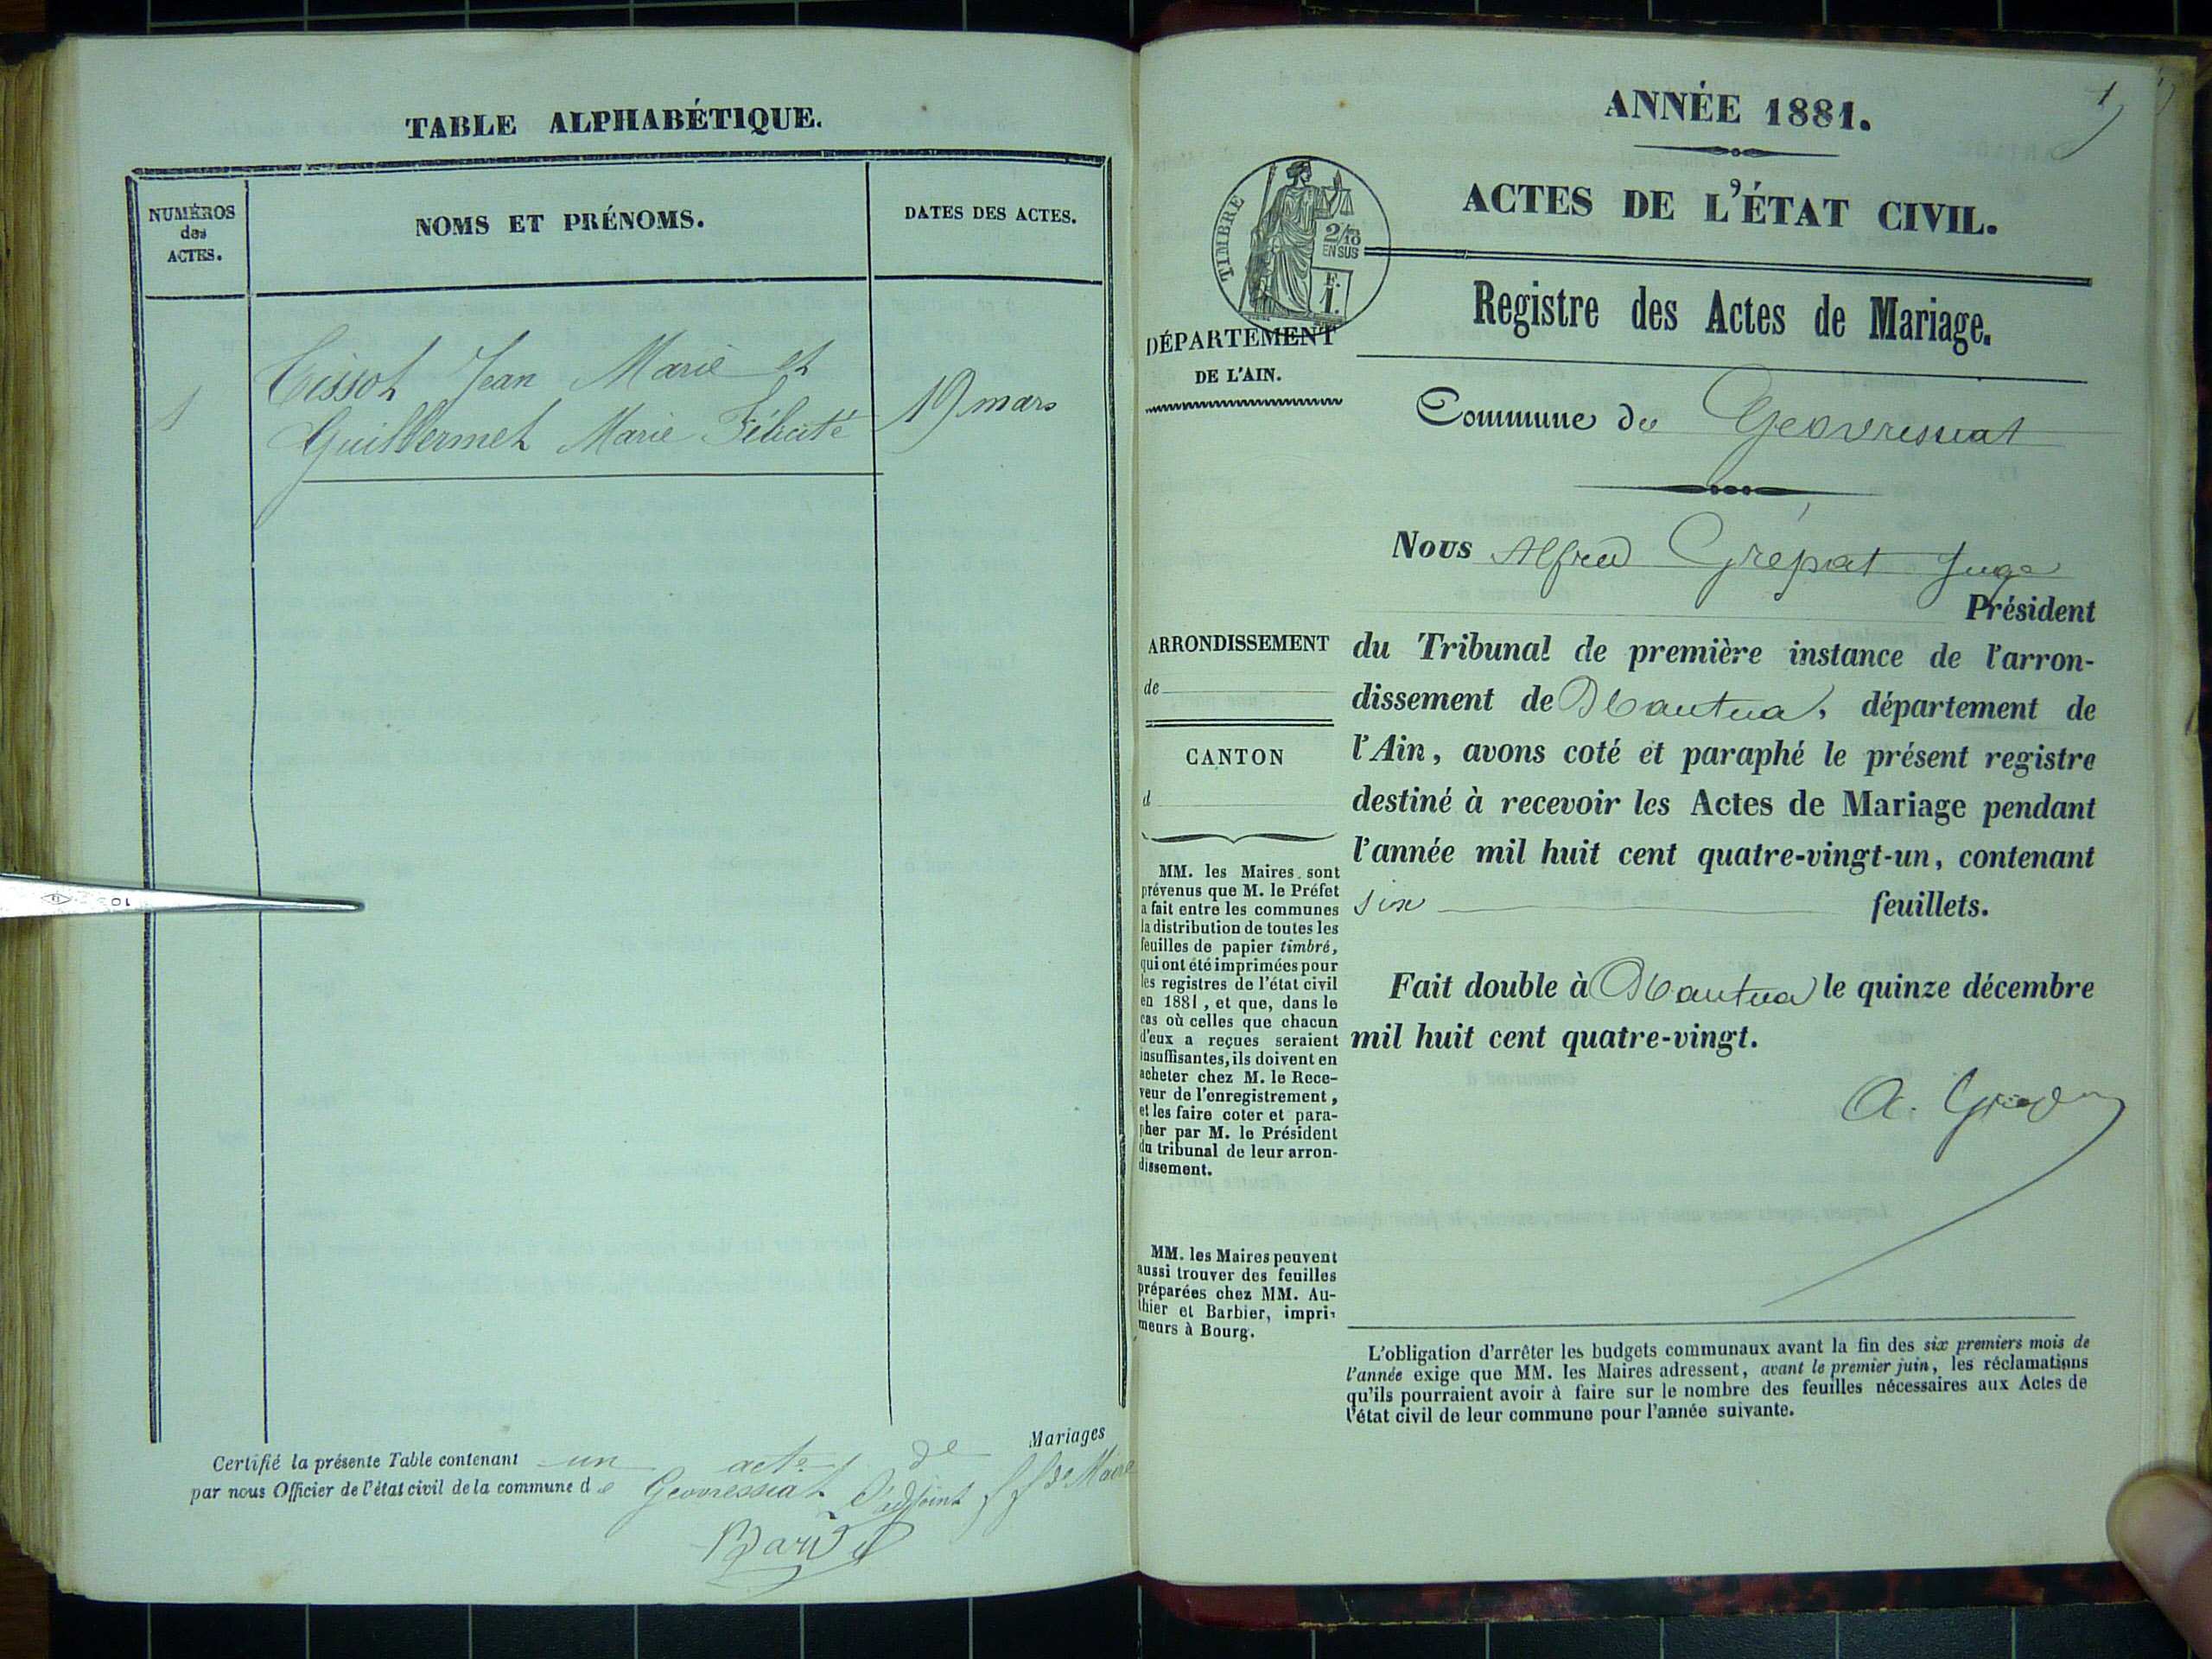 TABLE ALPHABÉTIQUE.
NUMÉROS
des
ACTES.
NOMS ET PRÉNOMS.
DATES DES ACTES.
1
Tissot Jean Marie et
Guillermet Marie Félicité
19 mars
Certifié la présente Table contenant un acte de Mariages
par nous Officier de l'état civil de la commune de Geovressiat L'adjoint ff de Maire
1
ANNÉE 1881.
ACTES DE L'ÉTAT CIVIL.
TIMBRE
2/10
EN SUS
F.
1.
Registre des Actes de Mariage.
DÉPARTEMENT
DE L'AIN.
Commune de Geovressiat
Nous Alfred Grépat Juge
Président
ARRONDISSEMENT
de
CANTON
d
du Tribunal de première instance de l'arron-
dissement de Nantua, département de
l'Ain, avons coté et paraphé le présent registre
destiné à recevoir les Actes de Mariage pendant
l'année mil huit cent quatre-vingt-un, contenant
six feuillets.
Fait double à Nantua le quinze décembre
mil huit cent quatre-vingt.
MM. les Maires sont
prévenus que M. le Préfet
a fait entre les communes
la distribution de toutes les
feuilles de papier timbré,
qui ont été imprimées pour
les registres de l'état civil
en 1881, et que, dans le
cas où celles que chacun
d'eux a reçues seraient
insuffisantes, ils doivent en
acheter chez M. le Rece-
veur de l'enregistrement,
et les faire coter et para-
pher par M. le Président
du tribunal de leur arron-
dissement.
MM. les Maires peuvent
aussi trouver des feuilles
préparées chez MM. Au-
thier et Barbier, impri-
meurs à Bourg.
L'obligation d'arrêter les budgets communaux avant la fin des six premiers mois de
l'année exige que MM. les Maires adressent, avant le premier juin, les réclamations
qu'ils pourraient avoir à faire sur le nombre des feuilles nécessaires aux Actes de
l'état civil de leur commune pour l'année suivante.